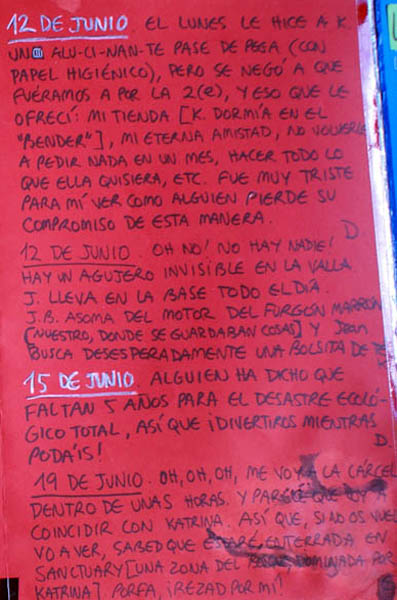 12 DE JUNIO EL LUNES LE HICE A K.
UN ALU-CI-NAN-TE PASE DE PEGA (CON
PAPEL HIGIÉNICO), PERO SE NEGÓ A QUE
FUÉRAMOS A POR LA 2(e), Y ESO QUE LE
OFRECÍ: MI TIENDA [K. DORMÍA EN EL
"BENDER"], MI ETERNA AMISTAD, NO VOLVERLE
A PEDIR NADA EN UN MES, HACER TODO LO
QUE ELLA QUISIERA, ETC. FUE MUY TRISTE
PARA MÍ VER COMO ALGUIEN PIERDE SU
COMPROMISO DE ESTA MANERA.
D
12 DE JUNIO. OH NO! NO HAY NADIE!
HAY UN AGUJERO INVISIBLE EN LA VALLA
J. LLEVA EN LA BASE TODO EL DIA.
J.B. ASOMA DEL MOTOR DEL FURGÓN MARRÓN
[NUESTRO, DONDE SE GUARDABAN COSAS] Y Jean
BUSCA DESESPERADAMENTE UNA BOLSITA DE TE
K
15 DE JUNIO ALGUIEN HA DICHO QUE
FALTAN 5 AÑOS PARA EL DESASTRE ECOLÓ-
GICO TOTAL, ASÍ QUE ¡DIVERTIROS MIENTRAS
PODÁIS!
D.
19 DE JUNIO. OH, OH, OH, ME VOY A LA CÁRCEL
DENTRO DE UNAS HORAS. Y PARECE QUE VOY A
COINCIDIR CON KATRINA. ASÍ QUE, SI NO OS VUEL
VO A VER, SABED QUE ESTARÉ ENTERRADA EN
SANCTUARY [UNA ZONA DEL BOSQUE DOMINADA POR
KATRINA] PORFA, ¡REZAD POR MI!